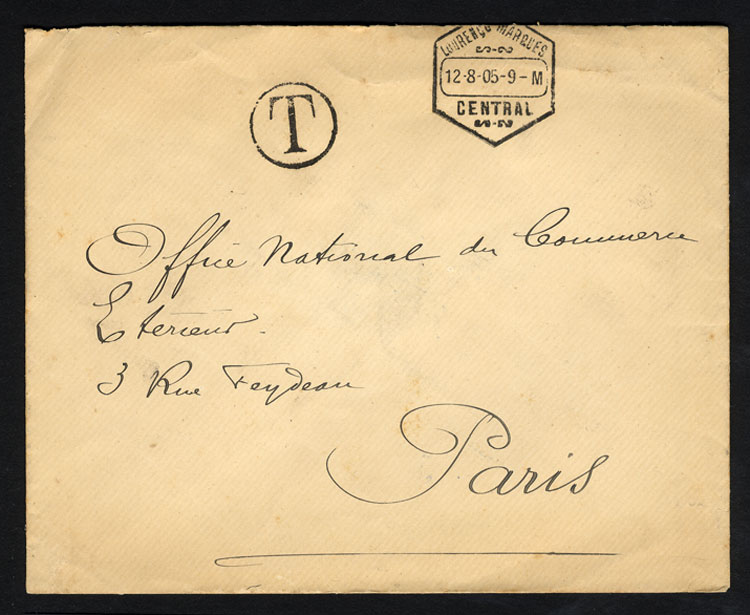 LOURENÇO MARQUES
12-8-05-9-M
CENTRAL
T
Office National du Commerce
Extérieur.
3 Rue Feydeau
Paris